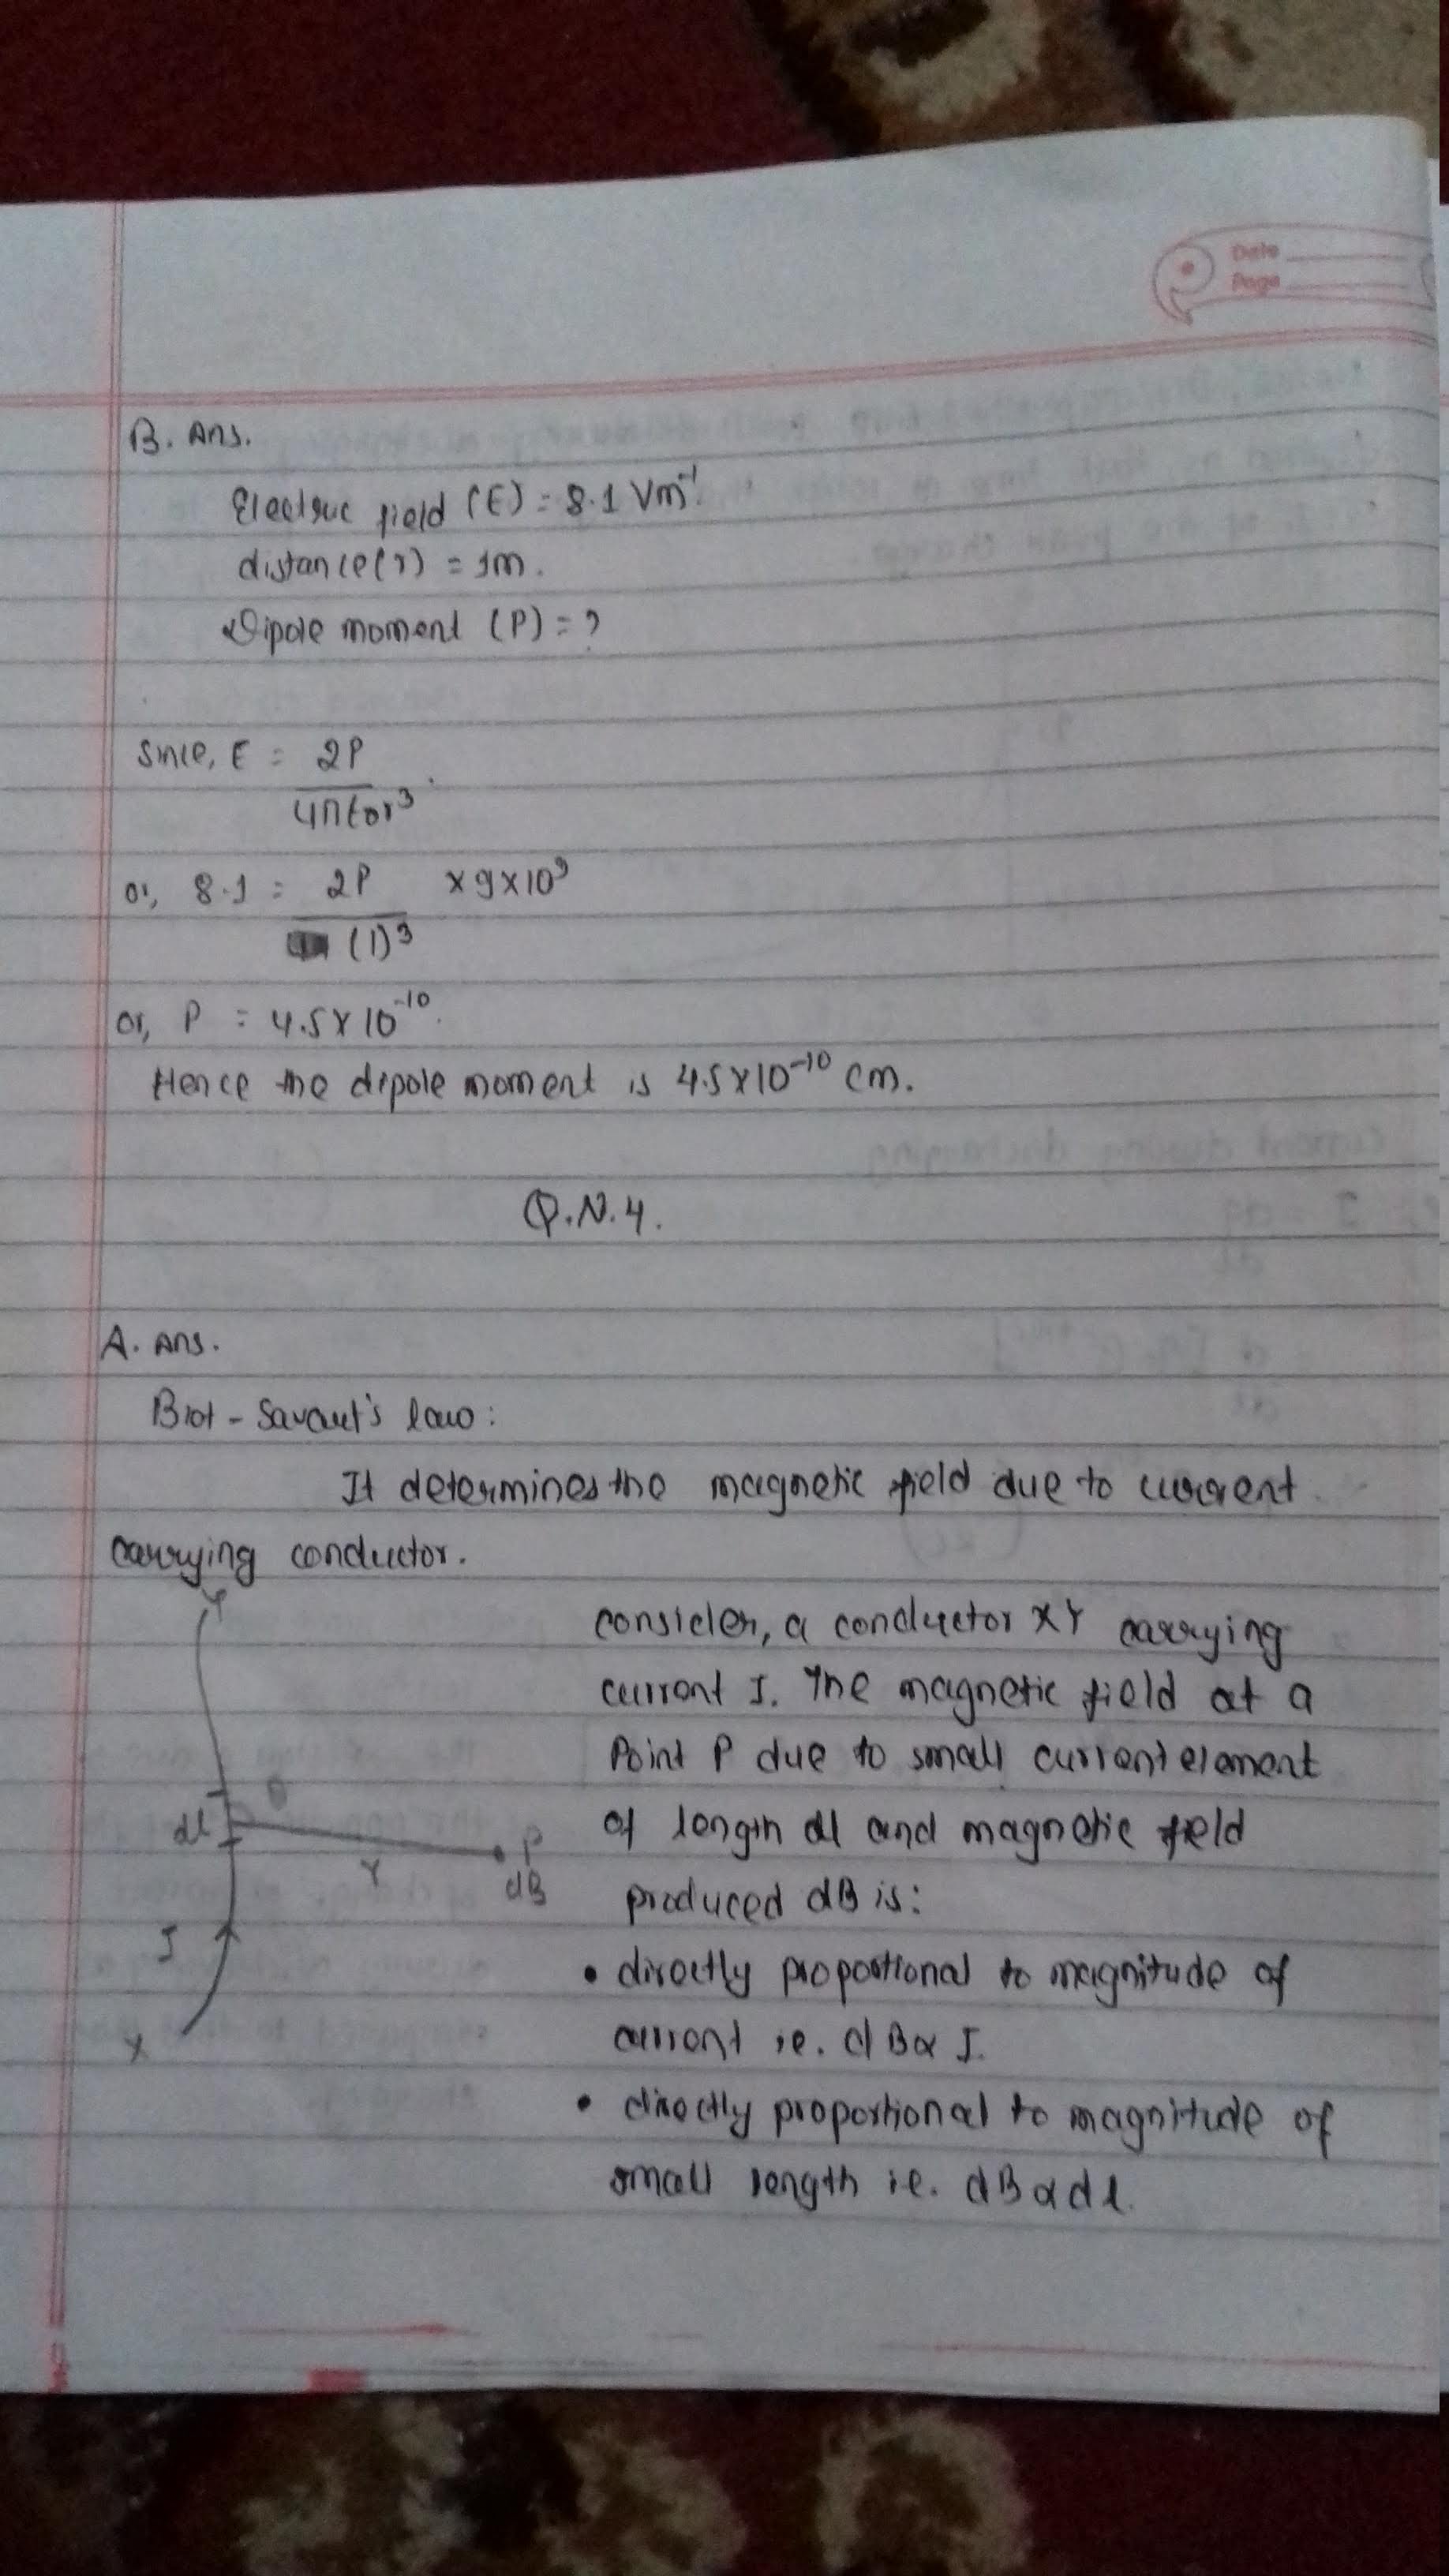 Date
Page
B. Ans.
Electric field (E) = 8.1 Vm⁻¹.
distance(r) = 1m.
Dipole moment (P) = ?
Since, E = 2P
4πε0r³
or, 8.1 = 2P × 9×10⁹
(1)³
or, P = 4.5×10⁻¹⁰.
Hence the dipole moment is 4.5×10⁻¹⁰ cm.
Q.N.4.
A. Ans.
Biot-Savart's law:
It determines the magnetic field due to current
carrying conductor.
Y
consider, a conductor XY carrying
current I. The magnetic field at a
Point P due to small current element
of length dl and magnetic field
produced dB is:
θ
dl
r
P
dB
I
X
• directly proportional to magnitude of
current ie. dB∝ I.
• directly proportional to magnitude of
small length i.e. dB∝dl.